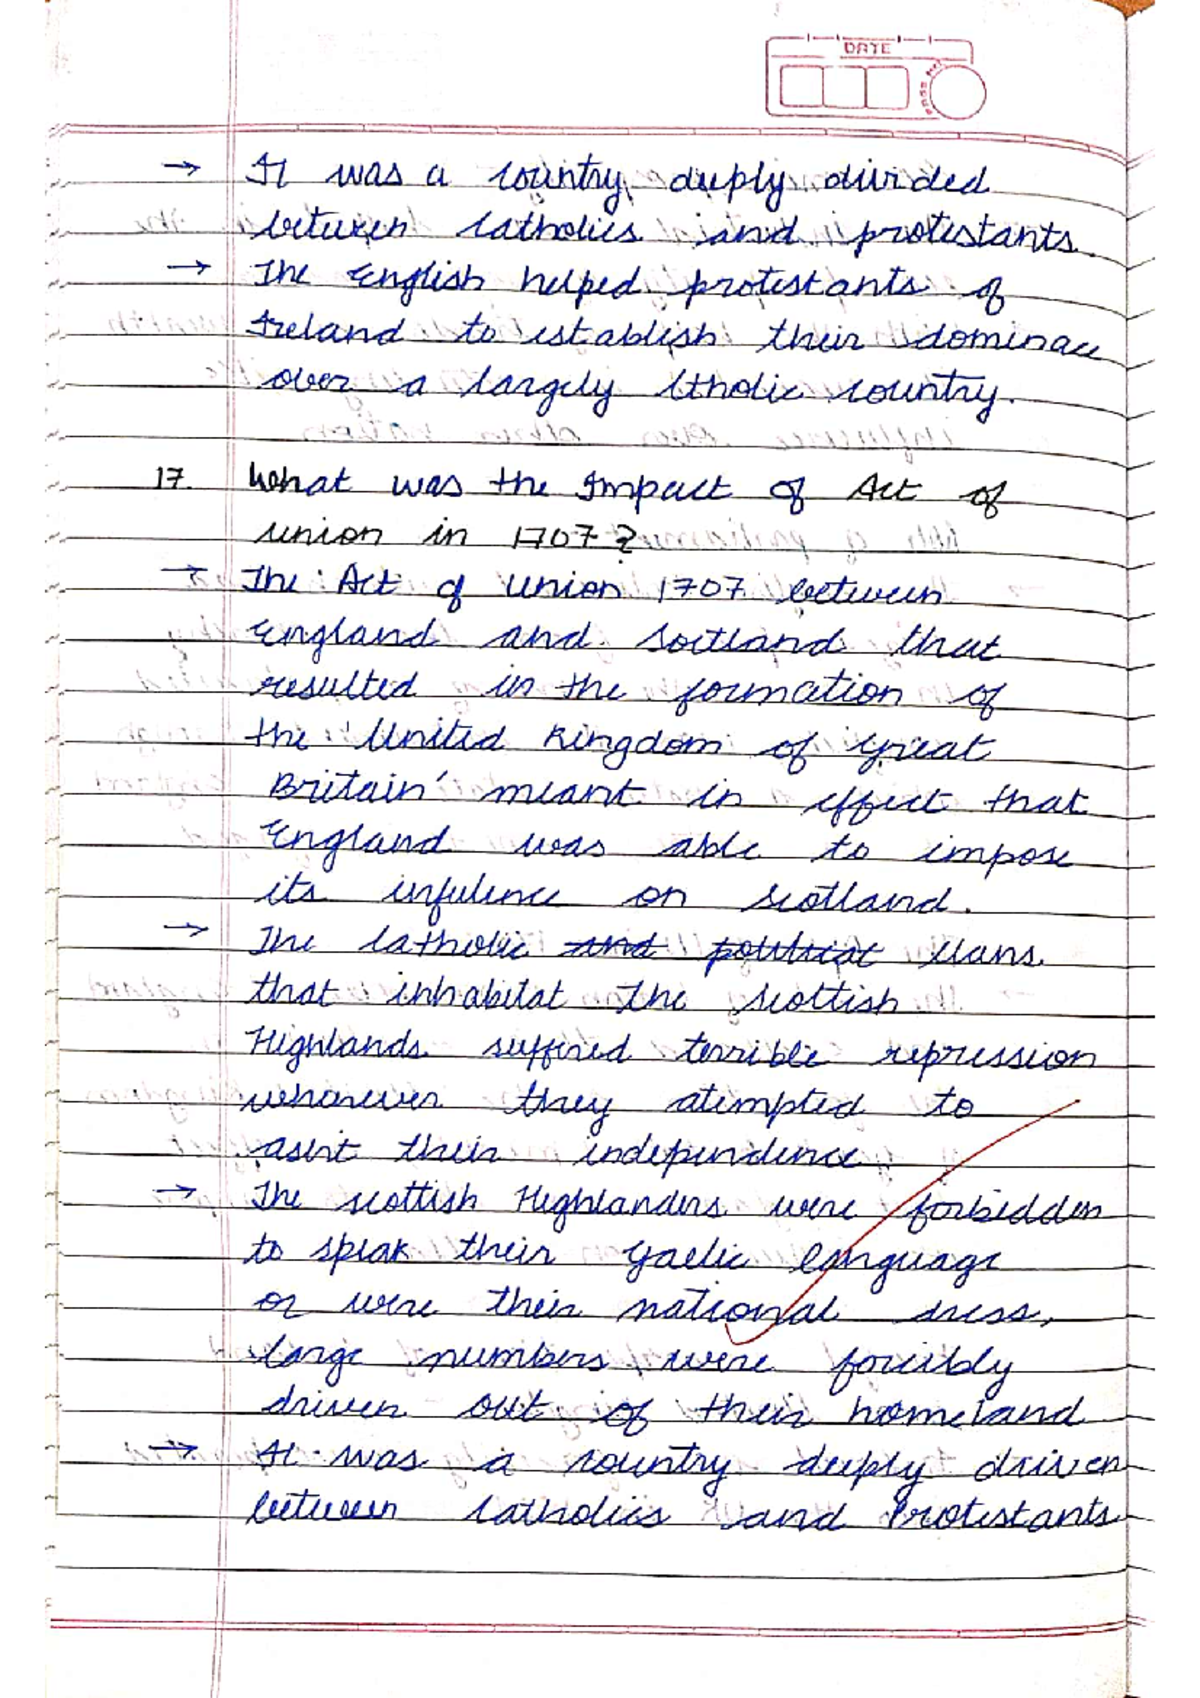 DATE
→ It was a country, deeply divided
between Catholics and protestants.
→ The English helped protestants of
Ireland to establish their dominace
over a largely Ctholic country.
17. What was the Impact of Act of
union in 1707?
→ The Act of Union 1707 between
England and Soctland that
resulted in the formation of
the 'United Kingdom of Great
Britain' meant in effect that
England was able to impose
its infulence on Scotland.
→ The Catholic and political clans
that inhabitat the Scottish
Highlands suffered terrible repression
wharever they atempted to
asert their independence
→ The scottish Highlanders were forbidden
to speak their Gaelic language
or were their national dress,
large numbers were forcibly
driven out of their homeland
→ It was a country deeply driven
between Catholics and Protestants